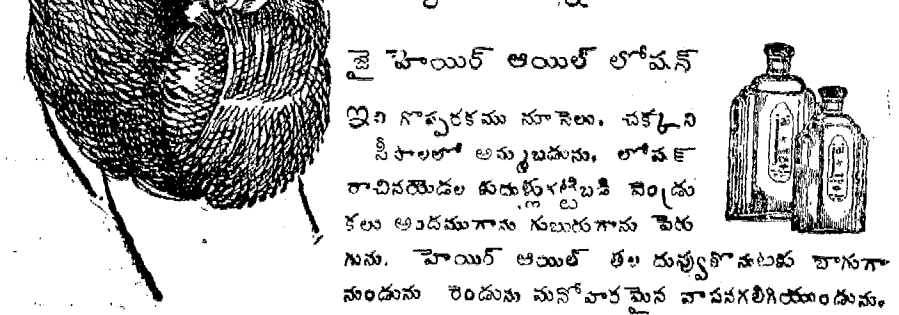 జై హెయిర్ ఆయిల్ లోషన్
ఇవి గొప్పరకము నూనెలు. చక్కని
సీసాలలో అమ్మబడును. లోషన్
రాచినయెడల కుదుళ్లుగట్టిబడి వెండ్రు
కలు అందముగాను గుబురుగాను పెరు
గును. హెయిర్ ఆయిల్ తల దువ్వుకొనుటకు బాగుగా
నుండును రెండును మనోహరమైన వాసనగలిగియుండును.